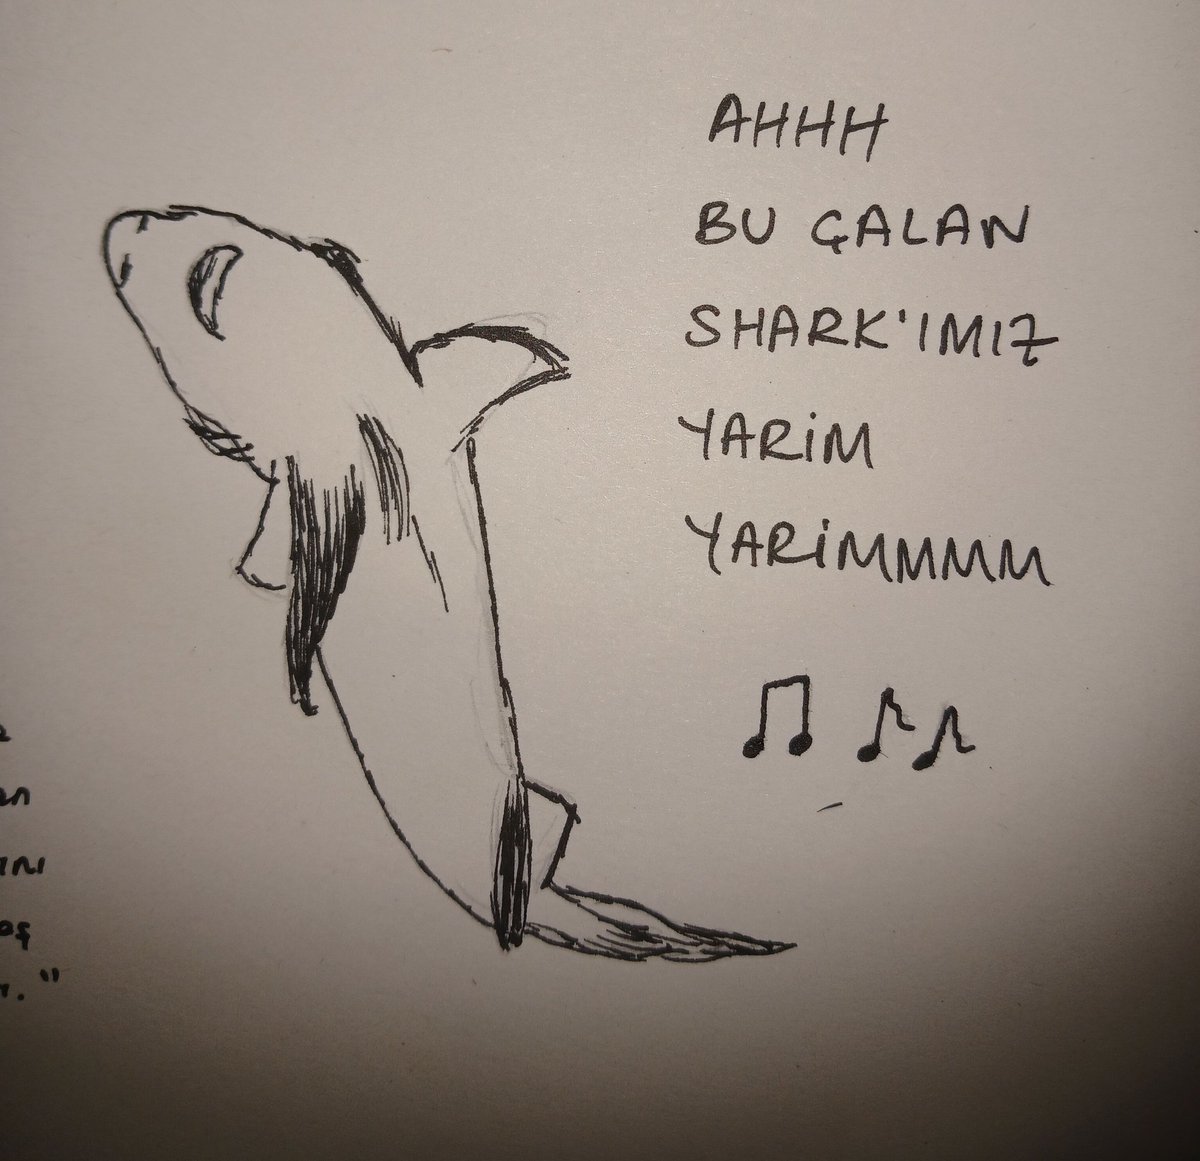 AHHH
BU ÇALAN
SHARK'IMIZ
YARİM
YARİMMMM